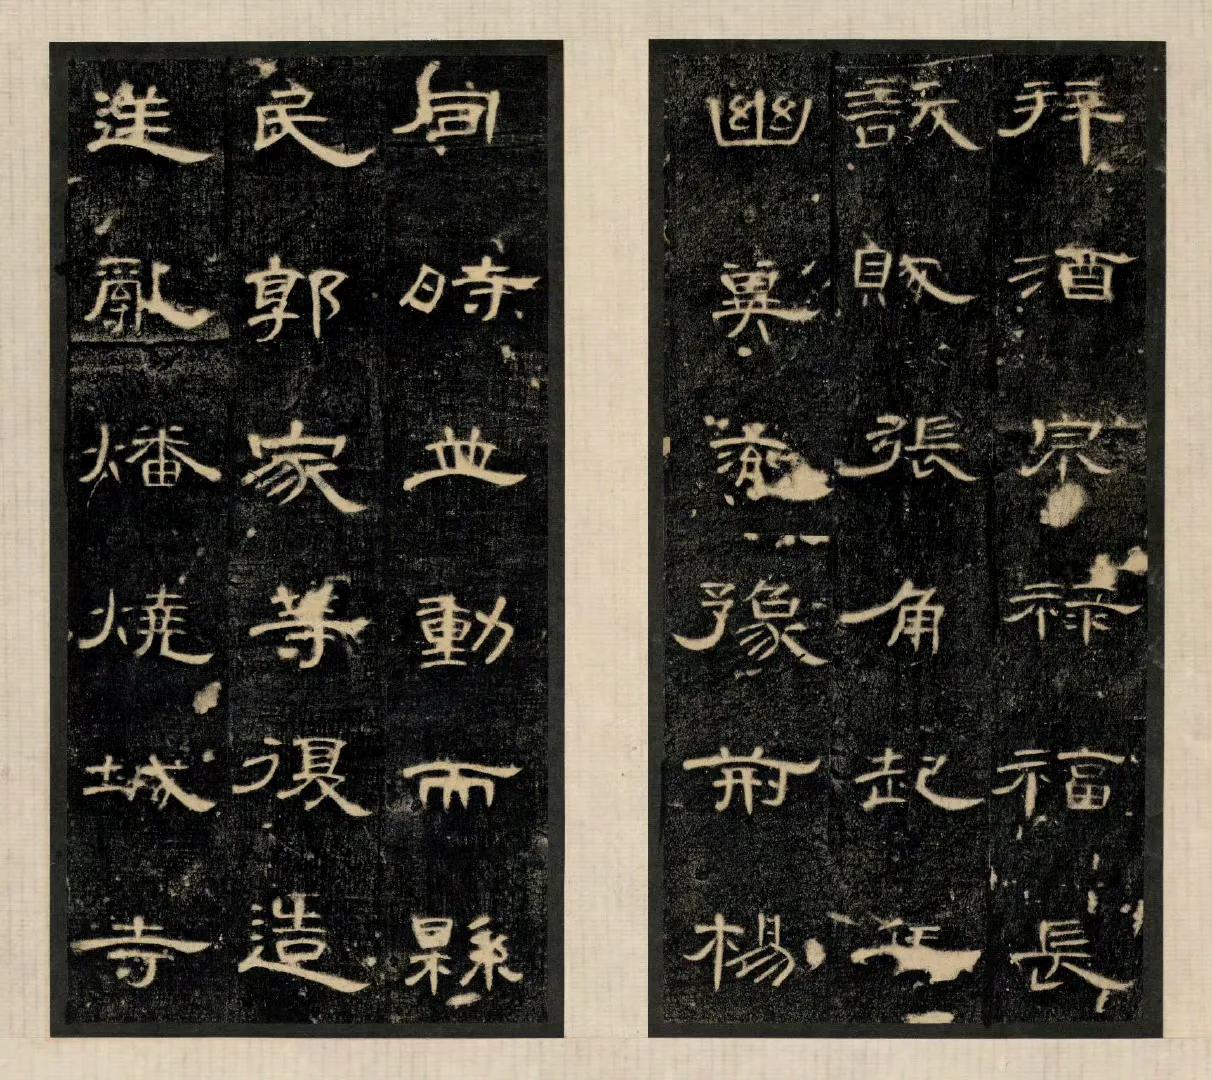 拜酒泉禄福長
訞賊張角起兵
幽冀兖豫荊楊
同時並動而縣
民郭家等復造
逆亂燔燒城寺